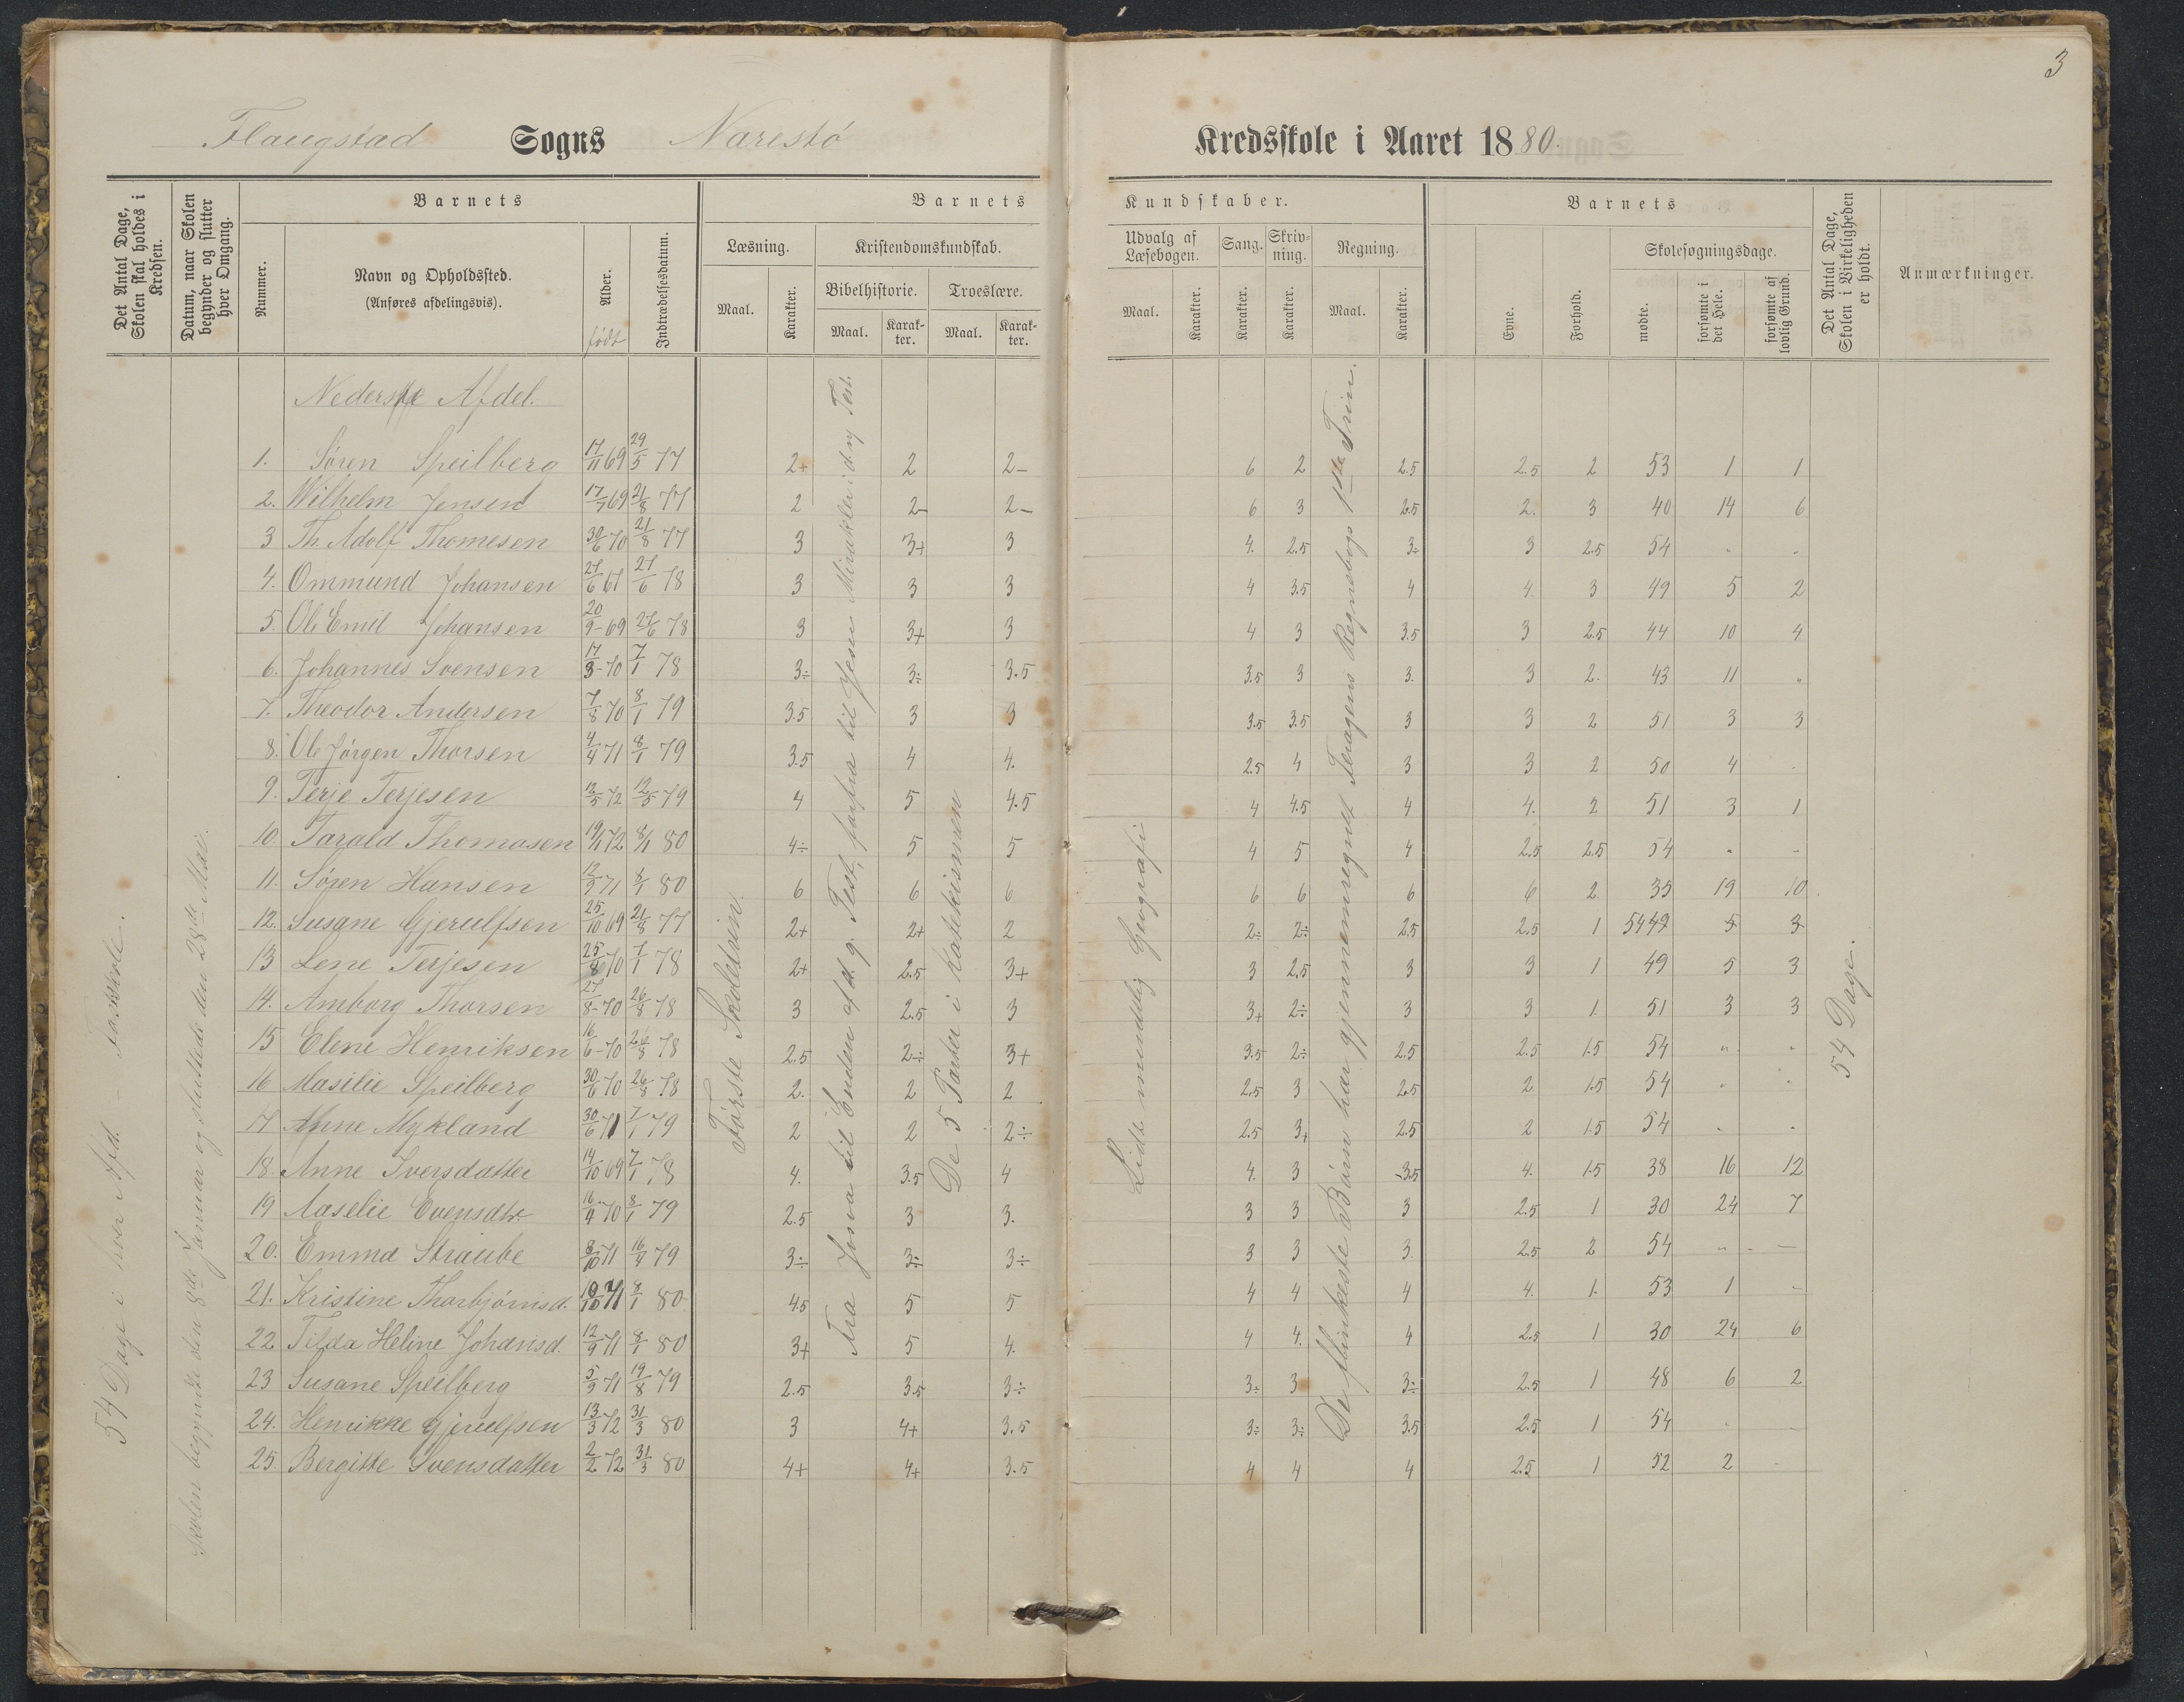 3
Flaugstad Sogns Narestø Kredsskole i Aaret 1880.
Det Antal Dage, Skolen skal holdes i Kredsen.
Datum, naar Skolen begynder og slutter hver Omgang.
Barnets
Nummer.
Navn og Opholdssted.
(Anføres afdelingsvis).
Alder.
født
Indtrædelsesdatum.
Barnets Kundskaber.
Læsning.
Maal. Karakter.
Kristendomskundskab.
Bibelhistorie. Troeslære.
Maal. Karakter. Maal. Karakter.
Udvalg af Læsebogen.
Maal. Karakter.
Sang.
Karakter.
Skrivning.
Karakter.
Regning.
Maal. Karakter.
Barnets
Evne. Forhold.
Skolesøgningsdage.
mødte. forsømte i det Hele. forsømte af lovlig Grund.
Det Antal Dage, Skolen i Virkeligheden er holdt.
Anmærkninger.
54 Dage i hver Afd. - Fastskole.
Skolen begyndte den 8de Januar og sluttede den 28de Mai.
Første Skoletrin.
Fra Josva til Enden af d. g. Test, forfra til Jesu Mirakler i d. ny Test.
De 5 Parter i Katekismen
Lidt mundtlig Geografi
De flinkeste Børn har gjennemregnet Teragens Regnebogs 1ste Trin.
54 Dage.
Nederste Afdel.
1. Søren Speilberg 17/11 69 29/5 77 2+ 2 2- 6 2 2.5 2.5 2 53 1 1
2. Wilhelm Jensen 17/7 69 21/8 77 2 2- 2- 6 3 2.5 2. 3 40 14 6
3 Th. Adolf Thomesen 30/6 70 21/8 77 3 3+ 3 4. 2.5 3÷ 3 2.5 54 " "
4. Ommund Johansen 27/6 67 27/6 78 3 3 3 4 3.5 4 4. 3 49 5 2
5. Ole Emil Johansen 20/9-69 27/6 78 3 3+ 3 4 3 3.5 3 2.5 44 10 4
6. Johannes Svensen 17/3-70 7/1 78 3÷ 3÷ 3.5 3.5 3 3. 3 2. 43 11 "
7. Theodor Andersen 7/8 70 8/1 79 3.5 3 3 3.5 3.5 3 3 2 51 3 3
8. Ole Jørgen Thorsen 4/4 71 8/1 79 3.5 4 4. 2.5 4 3 3 2 50 4 -
9. Terje Terjesen 12/5 72 12/5 79 4 5 4.5 4 4.5 4 4. 2 51 3 1
10. Tarald Thomasen 19/1 72 8/1 80 4÷ 5 5 4 5 4 2.5 2.5 54 " "
11. Søren Hansen 12/9 71 8/1 80 6 6 6 6 6 6 6 2 35 19 10
12. Susane Gjerulfsen 25/10 69 21/8 77 2+ 2+ 2 2÷ 2÷ 2.5 2.5 1 5449 5 3
13 Lene Terjesen 25/8 70 7/1 78 2+ 2.5 3+ 3 2.5 3 3 1 49 5 3
14. Amborg Thorsen 27/8-70 26/8 78 3 2.5 3 3+ 2÷ 3 3 1. 51 3 3
15 Elene Henriksen 16/6-70 26/8 78 2.5 2÷ 3+ 3.5 2÷ 2.5 2.5 1.5 54 " "
16 Masilie Speilberg 30/6 70 26/8 78 2. 2 2 2.5 3 2.5 2 1.5 54 " "
17 Anne Mykland 30/6 71 7/1 79 2 2 2÷ 2.5 3+ 2.5 2 1.5 54 " "
18. Anne Iversdatter 14/10 69 7/1 78 4. 3.5 4 4. 3 3.5 4. 1.5 38 16 12
19 Aaselie Evensdtr. 16/4 70 8/1 79 2.5 3 3. 3 3 3 2.5 1 30 24 7
20. Emma Straube 8/10 71 16/4 79 3÷ 3÷ 3÷ 3 3 3. 2.5 2 54 " -
21. Kristine Thorbjørnsd. 10/10 71 8/1 80 4.5 5 5 4 4 4 4. 1. 53 1 -
22 Tilda Heline Johansd. 12/9 71 8/1 80 3+ 5 4. 4 4. 4 2.5 1 30 24 6
23 Susane Speilberg 5/9 71 19/8 79 2.5 3.5 3÷ 3÷ 3 3÷ 2.5 1 48 6 2
24. Henrikke Gjerulfsen 13/3 72 31/3 80 3 4+ 3.5 3÷ 3÷ 3.5 2.5 1 54 " -
25 Bergitte Svensdatter 2/2 72 31/3 80 4+ 4+ 3.5 4 4 4 2.5 1 52 2 -